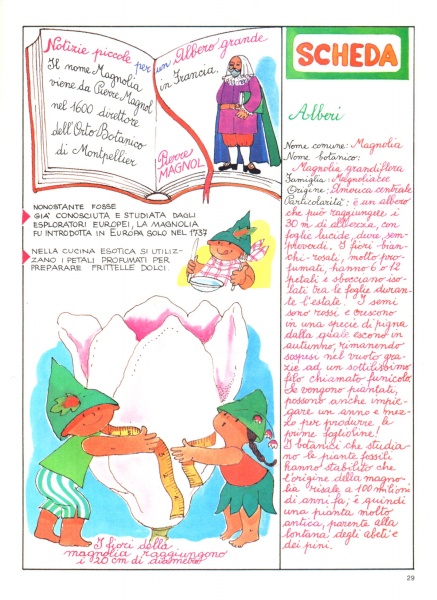 Notizie piccole per un Albero grande
Il nome Magnolia
viene da Pierre Magnol
nel 1600 direttore
dell'Orto Botanico
di Montpellier
in Francia.
Pierre
MAGNOL
NONOSTANTE FOSSE
GIA' CONOSCIUTA E STUDIATA DAGLI
ESPLORATORI EUROPEI, LA MAGNOLIA
FU INTRODOTTA IN EUROPA SOLO NEL 1737
NELLA CUCINA ESOTICA SI UTILIZ-
ZANO I PETALI PROFUMATI PER
PREPARARE FRITTELLE DOLCI.
I fiori della
magnolia raggiungono
i 20 cm di diametro
SCHEDA
Alberi
Nome comune: Magnolia
Nome botanico:
Magnolia grandiflora
Famiglia: Magnoliacee
Origine: America centrale
Particolarità: è un albero
che può raggiungere i
30 m di altezza, con
foglie lucide, dure, sem-
preverdi. I fiori bian-
chi-rosati, molto pro-
fumati, hanno 6 o 12
petali e sbocciano iso-
lati tra le foglie duran-
te l'estate. I semi
sono rossi e crescono
in una specie di pigna
dalla quale escono in
autunno, rimanendo
sospesi nel vuoto gra-
zie ad un sottilissimo
filo chiamato funicolo.
Se vengono piantati,
possono anche impie-
gare un anno e mez-
zo per produrre le
prime foglioline!
I botanici che studia-
no le piante fossili
hanno stabilito che
l'origine della magno-
lia risale a 100 milioni
di anni fa; è quindi
una pianta molto
antica, parente alla
lontana degli abeti e
dei pini.
29